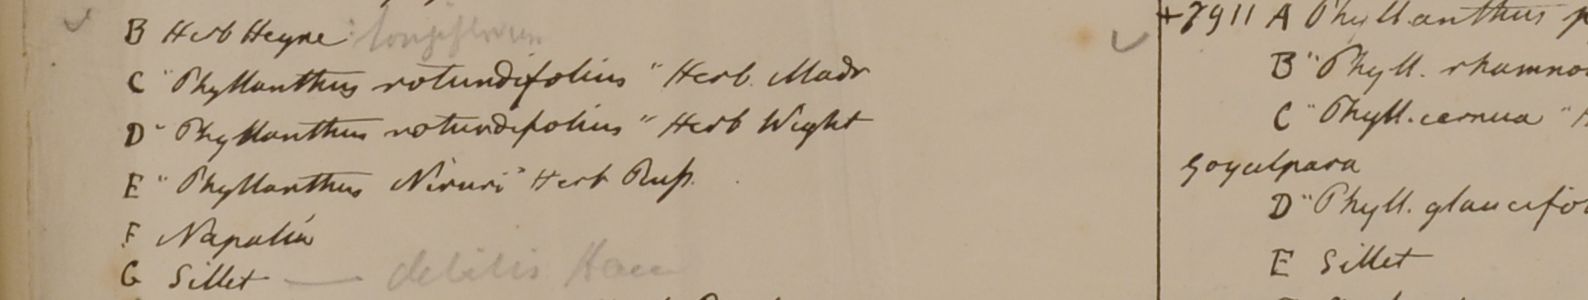 B Herb Heyne
C "Phyllanthus rotundifolius" Herb. Madr
D "Phyllanthus rotundifolius" Herb Wight
E "Phyllanthus Niruri" Herb Russ.
F Napalia
G Sillet — debilis Ham
+7911 A Phyllanthus
B "Phyll. rhamno
C "Phyll. cernua"
Goyalpara
D "Phyll. glaucifo
E Sillet